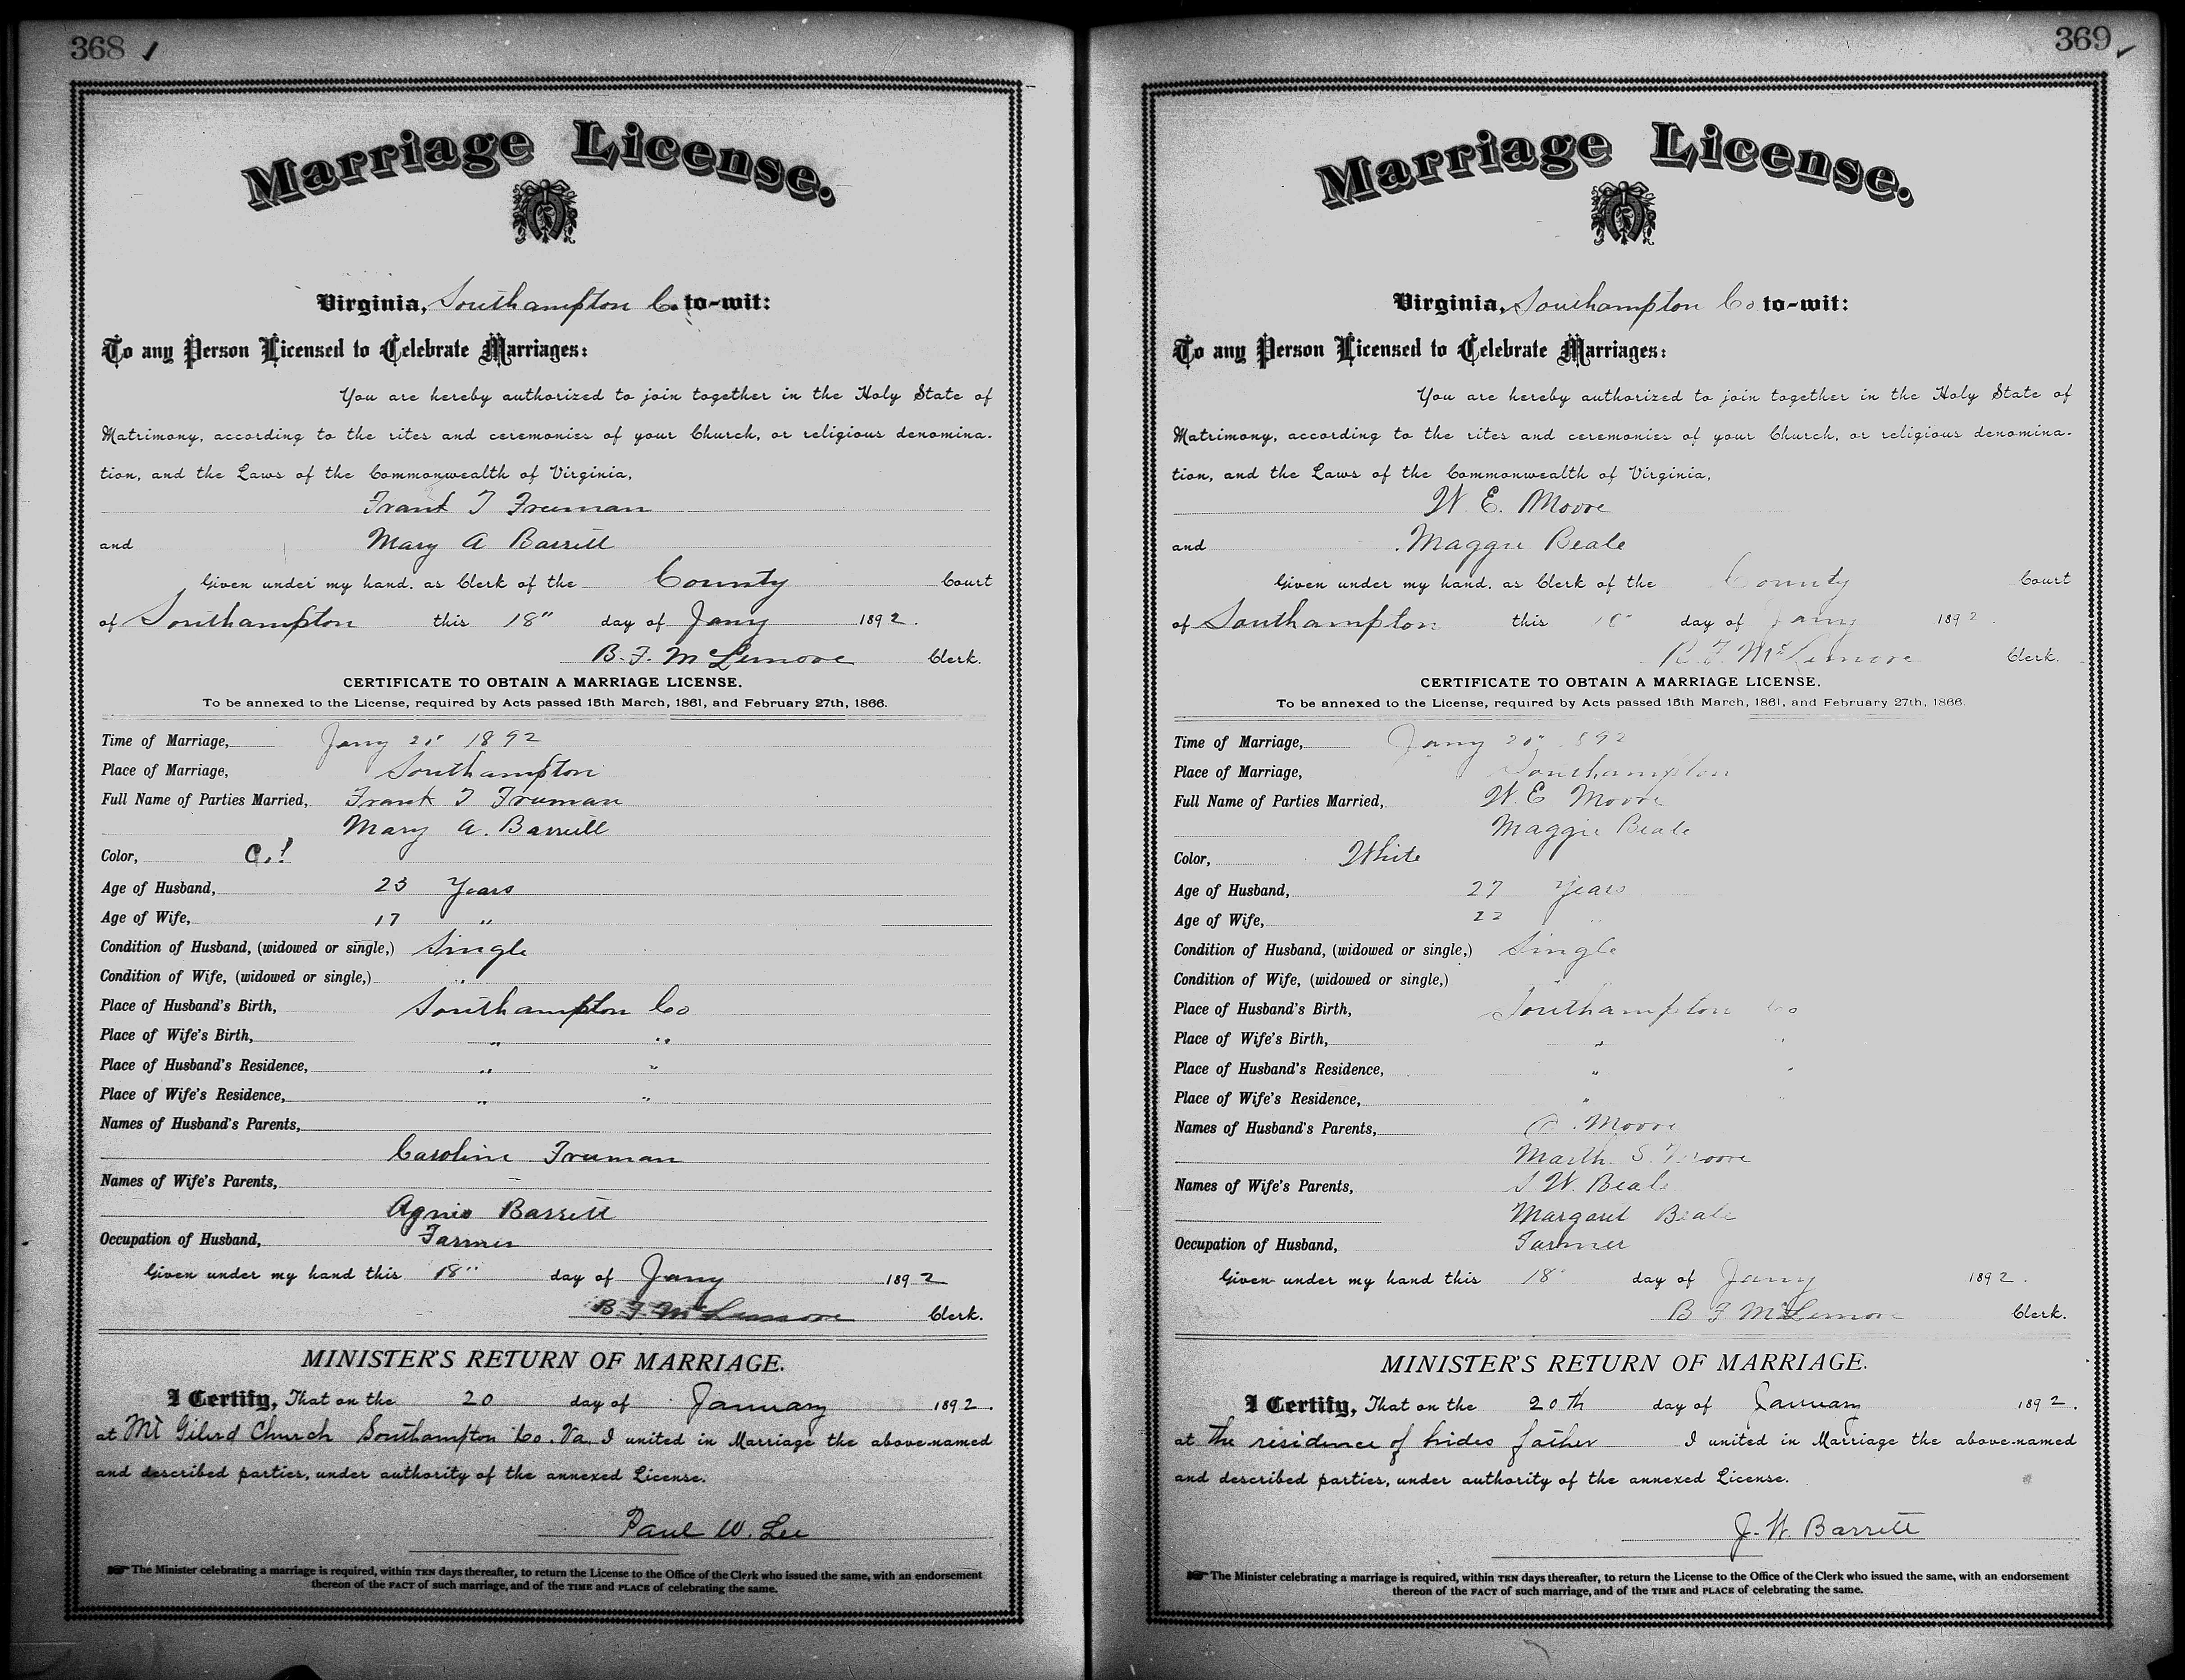 368
Marriage License.
Virginia, Southampton Co. to-wit:
To any Person Licensed to Celebrate Marriages:
You are hereby authorized to join together in the Holy State of
Matrimony, according to the rites and ceremonies of your Church, or religious denomina-
tion, and the Laws of the Commonwealth of Virginia,
Frank T Freeman
and Mary A Barrett
Given under my hand, as Clerk of the County Court
of Southampton this 18" day of Jany 1892.
B. F. McLemore Clerk.
CERTIFICATE TO OBTAIN A MARRIAGE LICENSE.
To be annexed to the License, required by Acts passed 15th March, 1861, and February 27th, 1866.
Time of Marriage, Jany 20" 1892
Place of Marriage, Southampton
Full Name of Parties Married, Frank T Freeman
Mary A. Barrett
Color, C.
Age of Husband, 23 Years
Age of Wife, 17 "
Condition of Husband, (widowed or single,) Single
Condition of Wife, (widowed or single,) "
Place of Husband's Birth, Southampton Co
Place of Wife's Birth, " "
Place of Husband's Residence, " "
Place of Wife's Residence, " "
Names of Husband's Parents,
Caroline Freeman
Names of Wife's Parents,
Agnes Barrett
Occupation of Husband, Farmer
Given under my hand this 18" day of Jany 1892
B F McLemore Clerk.
MINISTER'S RETURN OF MARRIAGE.
I Certify, That on the 20 day of January 1892.
at Mt Gilerd Church Southampton Co. Va. I united in Marriage the above-named
and described parties, under authority of the annexed License.
Paul W. Lee
The Minister celebrating a marriage is required, within TEN days thereafter, to return the License to the Office of the Clerk who issued the same, with an endorsement
thereon of the FACT of such marriage, and of the TIME and PLACE of celebrating the same.
369
Marriage License.
Virginia, Southampton Co to-wit:
To any Person Licensed to Celebrate Marriages:
You are hereby authorized to join together in the Holy State of
Matrimony, according to the rites and ceremonies of your Church, or religious denomina-
tion, and the Laws of the Commonwealth of Virginia,
W. E. Moore
and Maggie Beale
Given under my hand, as Clerk of the County Court
of Southampton this 18" day of Jany 1892.
B. F. McLemore Clerk.
CERTIFICATE TO OBTAIN A MARRIAGE LICENSE.
To be annexed to the License, required by Acts passed 15th March, 1861, and February 27th, 1866.
Time of Marriage, Jany 20" 1892
Place of Marriage, Southampton
Full Name of Parties Married, W. E Moore
Maggie Beale
Color, White
Age of Husband, 27 Years
Age of Wife, 22 "
Condition of Husband, (widowed or single,) Single
Condition of Wife, (widowed or single,)
Place of Husband's Birth, Southampton Co
Place of Wife's Birth, " "
Place of Husband's Residence, " "
Place of Wife's Residence, " "
Names of Husband's Parents, Moore
Marth. S. Moore
Names of Wife's Parents, W. Beale
Margaret Beale
Occupation of Husband, Farmer
Given under my hand this 18" day of Jany 1892.
B F McLemore Clerk.
MINISTER'S RETURN OF MARRIAGE.
I Certify, That on the 20th day of January 1892.
at the residence of brides father I united in Marriage the above-named
and described parties, under authority of the annexed License.
J. W. Barrett
The Minister celebrating a marriage is required, within TEN days thereafter, to return the License to the Office of the Clerk who issued the same, with an endorsement
thereon of the FACT of such marriage, and of the TIME and PLACE of celebrating the same.